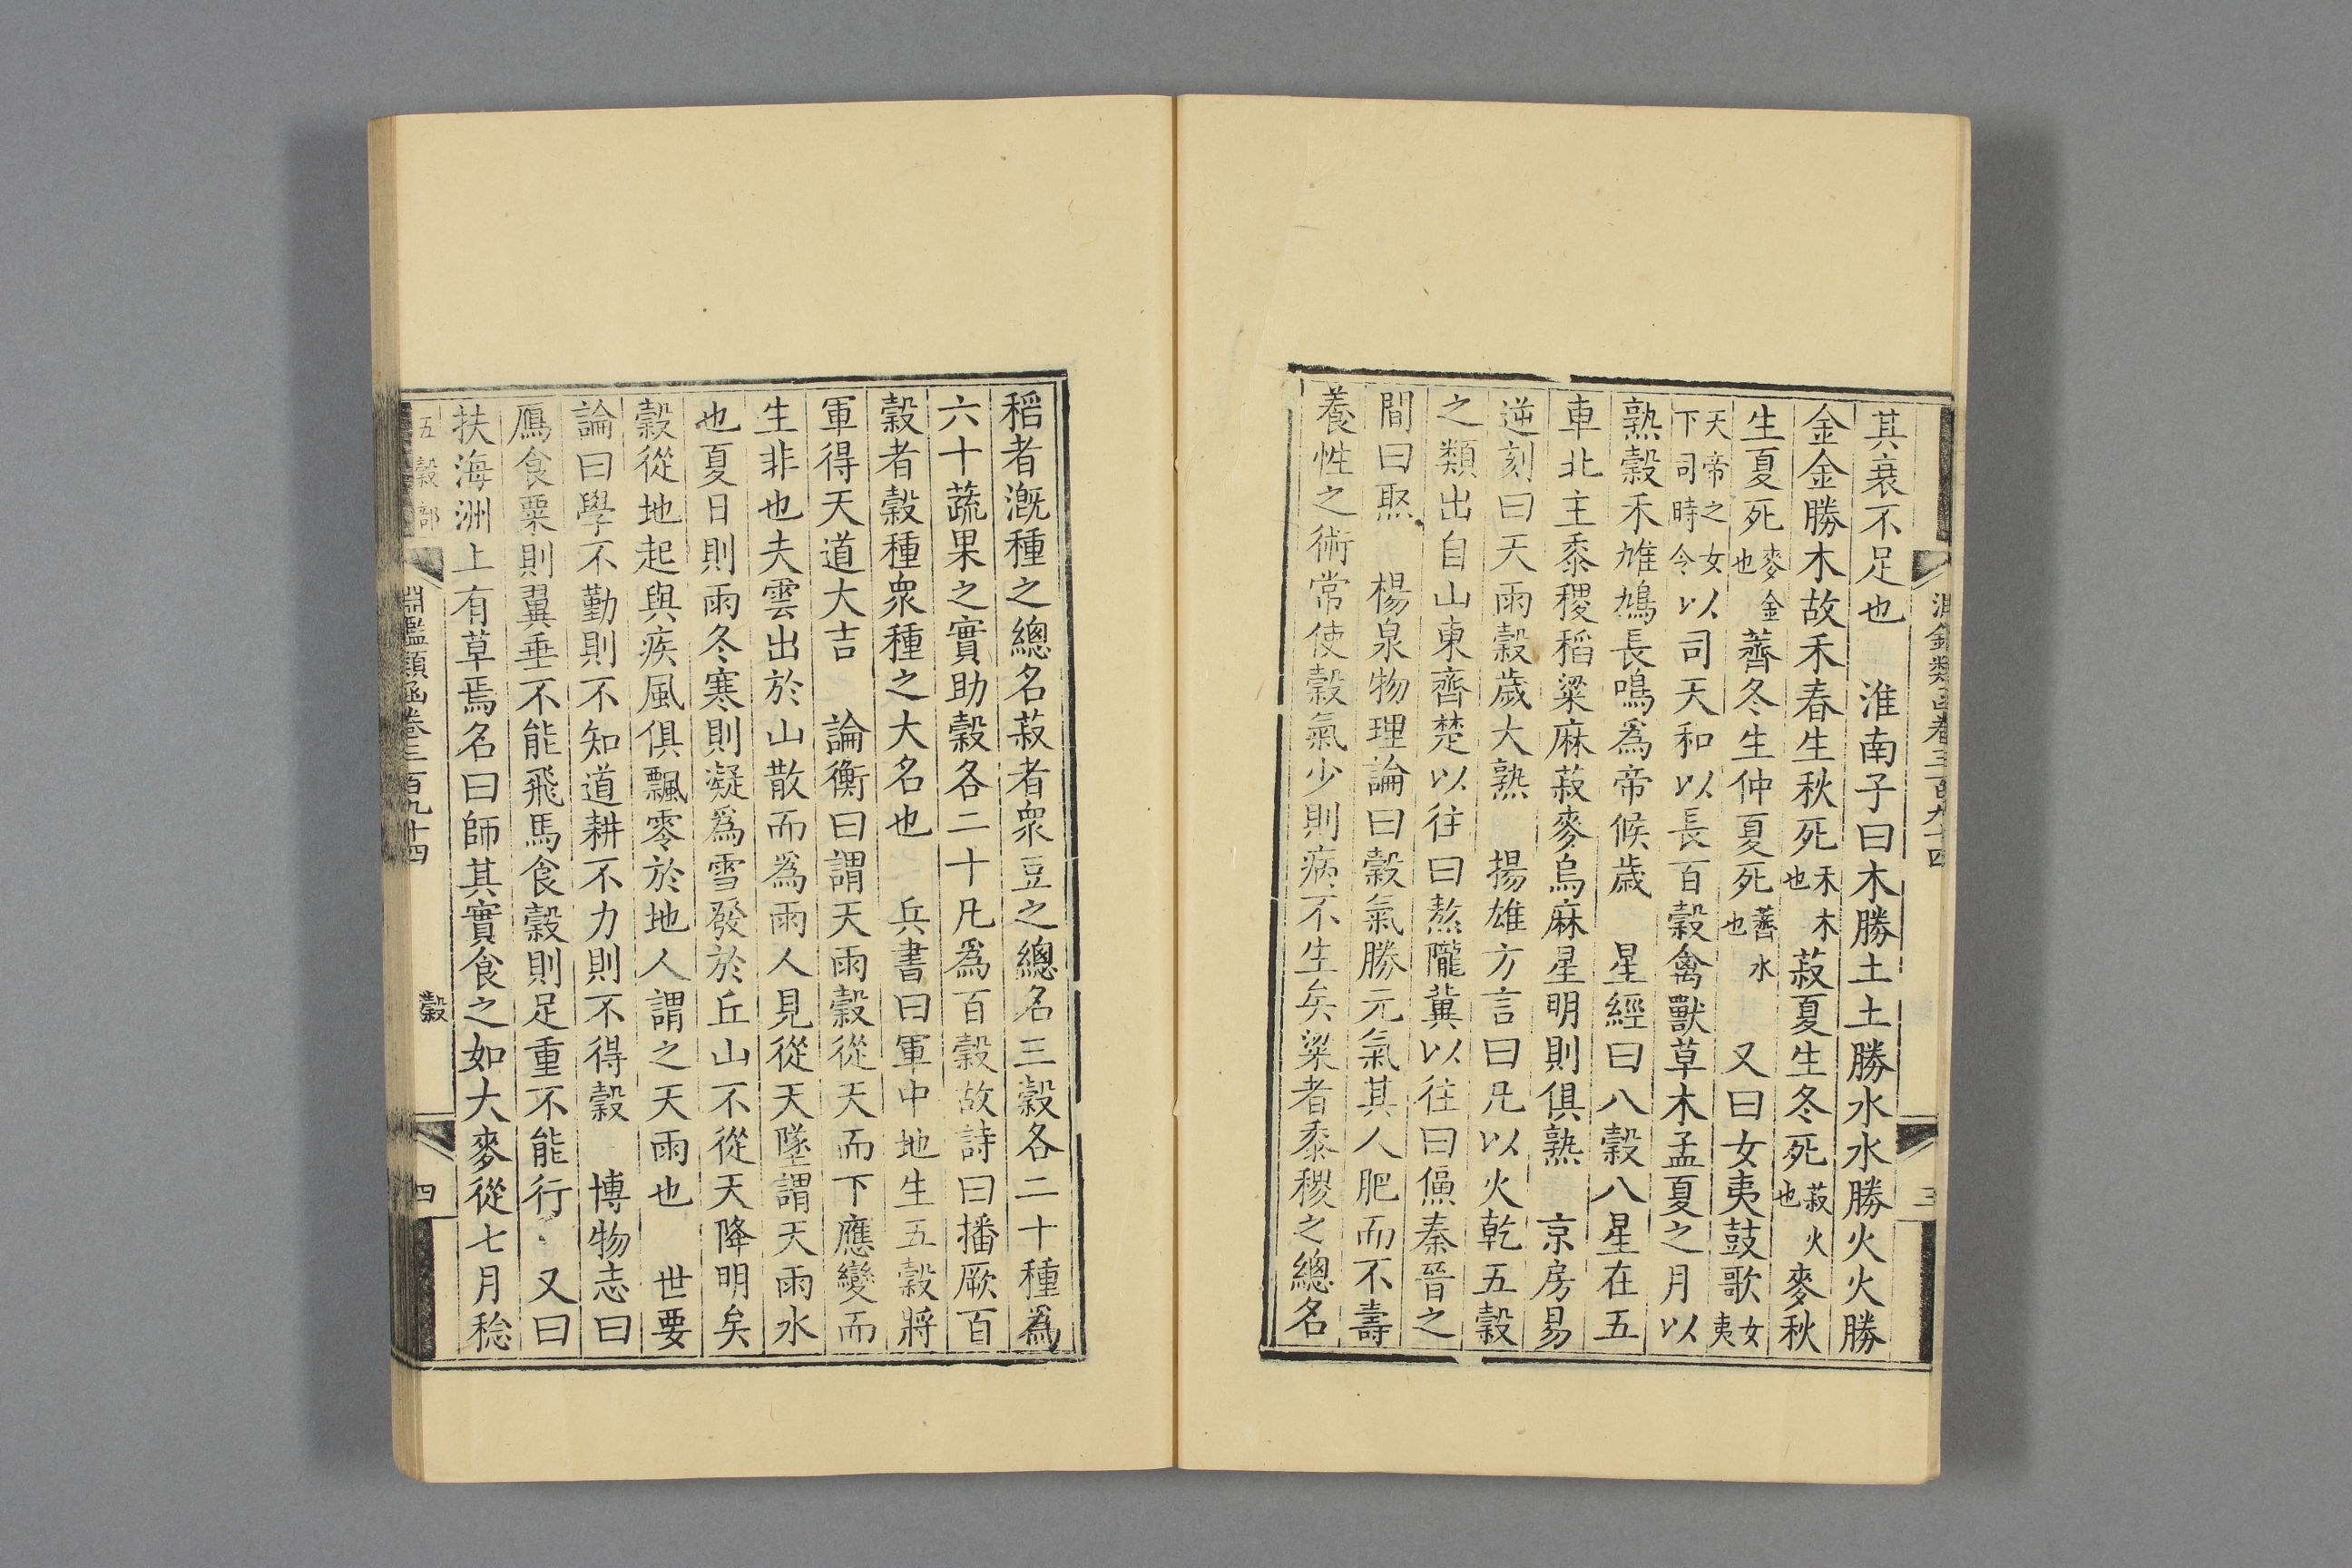 淵鑑類函卷三百九十四
三
其衰不足也　淮南子曰木勝土土勝水水勝火火勝
金金勝木故禾春生秋死禾木也菽夏生冬死菽火也麥秋
生夏死麥金也薺冬生仲夏死薺水也　又曰女夷鼓歌女夷
天帝之女下司時令以司天和以長百穀禽獸草木孟夏之月以
熟穀禾雄鳩長鳴為帝候歲　星經曰八穀八星在五
車北主黍稷稻粱麻菽麥烏麻星明則俱熟　京房易
逆刻曰天雨穀歲大熟　揚雄方言曰凡以火乾五穀
之類出自山東齊楚以往曰熬隴冀以往曰僫秦晉之
間曰聚　楊泉物理論曰穀氣勝元氣其人肥而不壽
養性之術常使穀氣少則病不生矣粱者黍稷之總名
稻者溉種之總名菽者衆豆之總名三穀各二十種爲
六十蔬果之實助穀各二十凡爲百穀故詩曰播厥百
穀者穀種衆種之大名也　兵書曰軍中地生五穀將
軍得天道大吉　論衡曰謂天雨穀從天而下應變而
生非也夫雲出於山散而爲雨人見從天墜謂天雨水
也夏日則雨冬寒則凝爲雪發於丘山不從天降明矣
穀從地起與疾風俱飄零於地人謂之天雨也　世要
論曰學不勤則不知道耕不力則不得穀　博物志曰
鴈食粟則翼垂不能飛馬食穀則足重不能行　又曰
扶海洲上有草焉名曰師其實食之如大麥從七月稔
五穀部
淵鑑類函卷三百九十四
穀
四